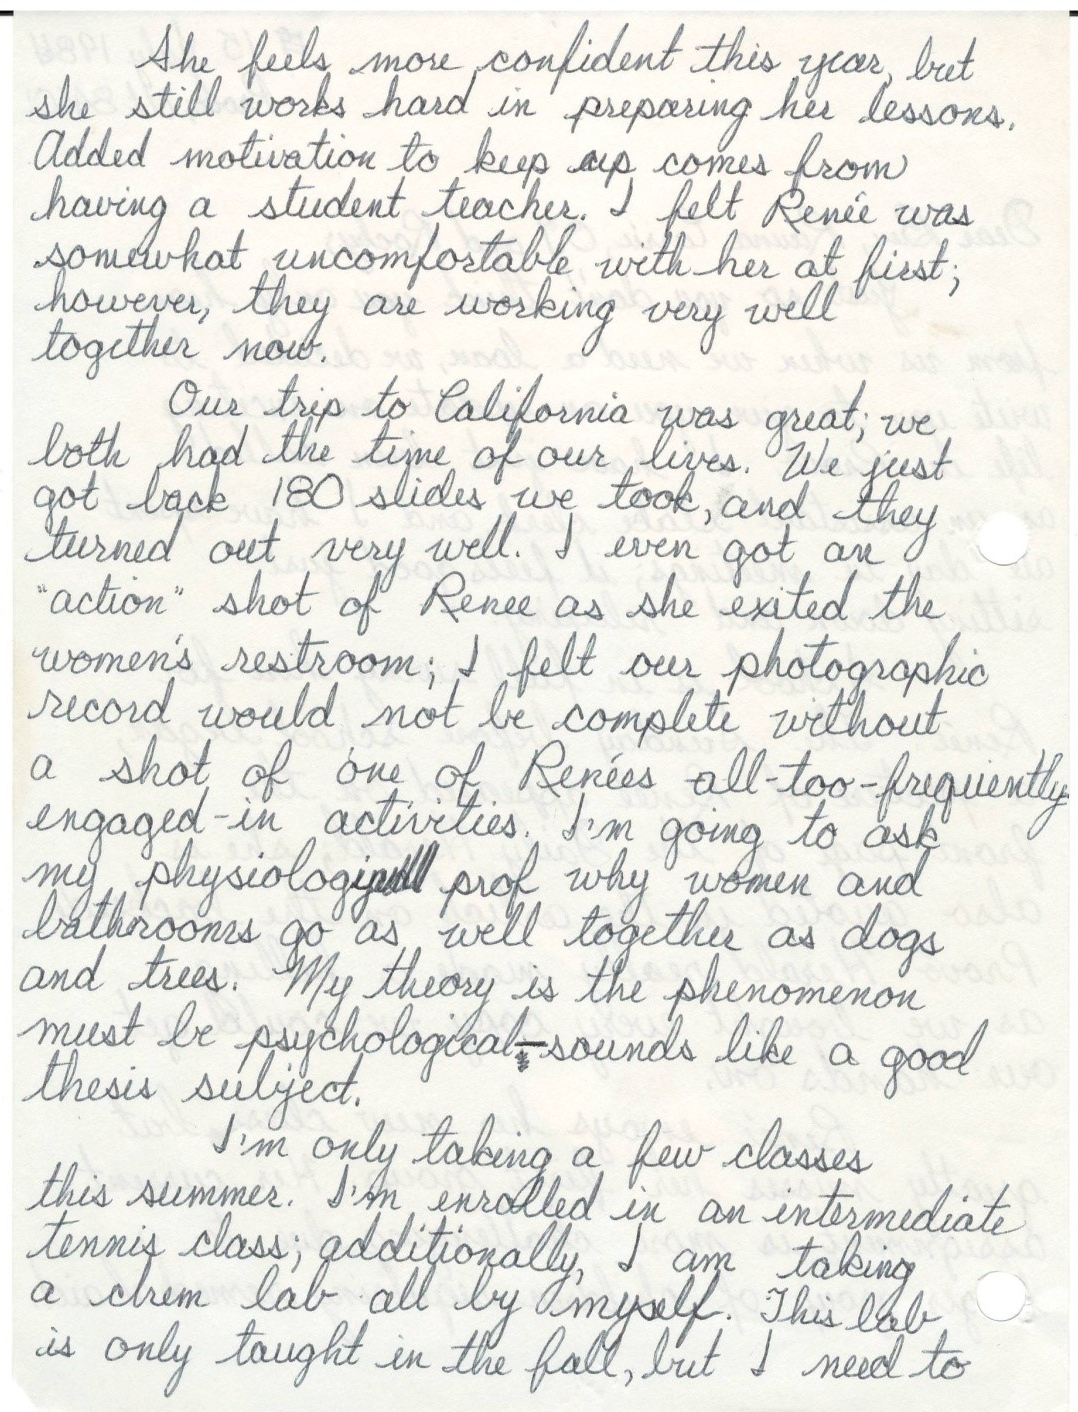 She feels more confident this year, but
she still works hard in preparing her lessons.
Added motivation to keep up comes from
having a student teacher. I felt Renée was
somewhat uncomfortable with her at first;
however, they are working very well
together now.
Our trip to California was great; we
both had the time of our lives. We just
got back 180 slides we took, and they
turned out very well. I even got an
"action" shot of Renee as she exited the
women's restroom; I felt our photographic
record would not be complete without
a shot of one of Renée's all-too-frequently
engaged-in activities. I'm going to ask
my physiology prof why women and
bathrooms go as well together as dogs
and trees. My theory is the phenomenon
must be psychological—sounds like a good
thesis subject.
I'm only taking a few classes
this summer. I'm enrolled in an intermediate
tennis class; additionally, I am taking
a chem lab all by myself. This lab
is only taught in the fall, but I need to